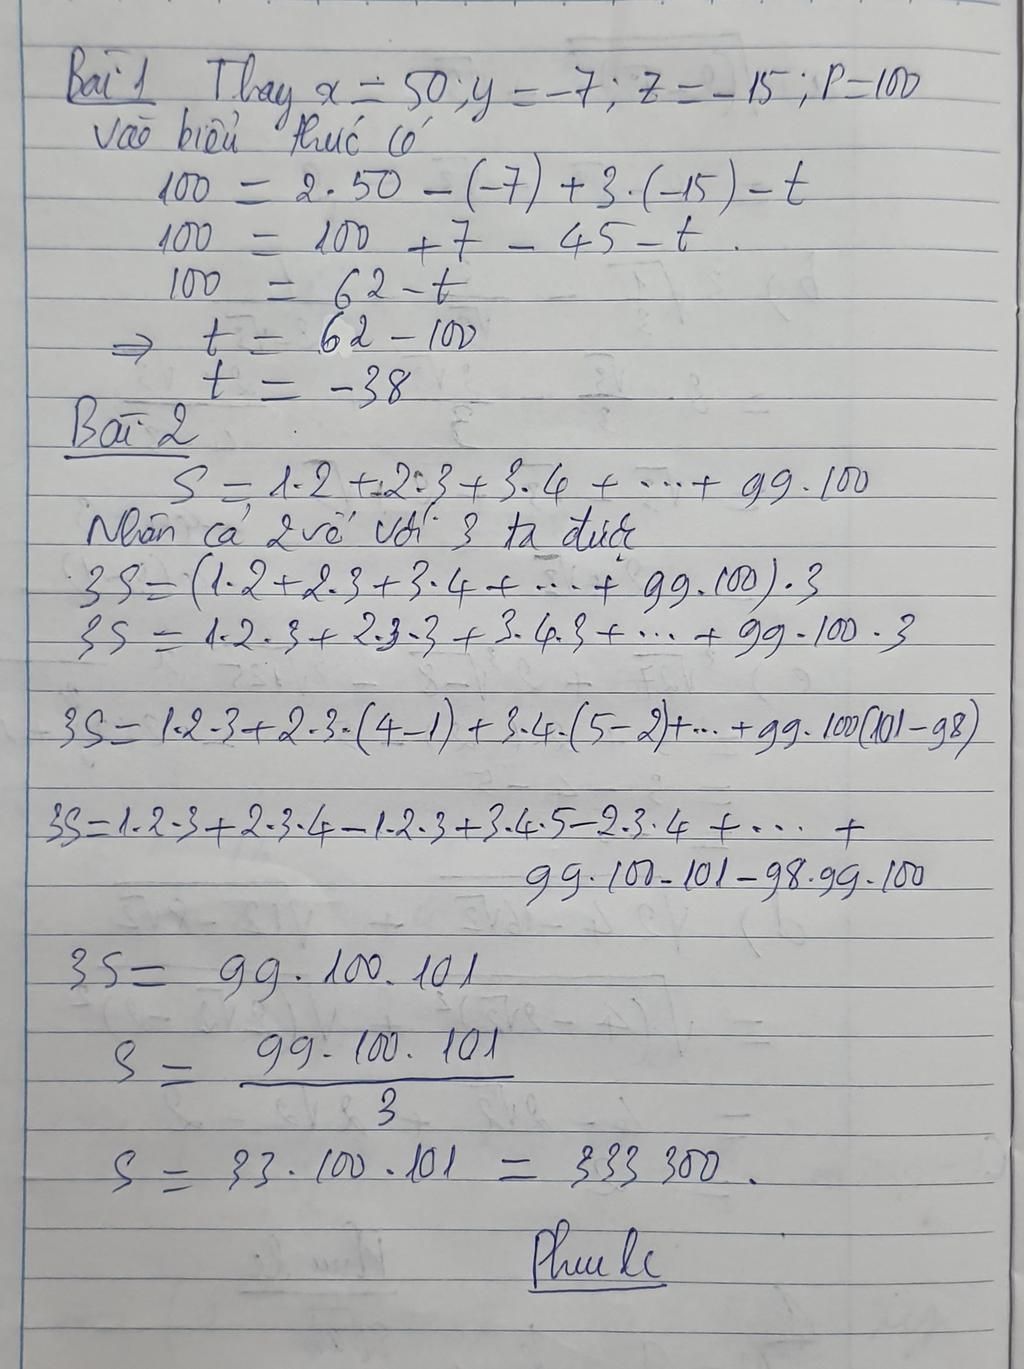 Bài 1 Thay x = 50; y = -7; z = -15; P = 100
vào biểu thức có
100 = 2.50 - (-7) + 3.(-15) - t
100 = 100 + 7 - 45 - t.
100 = 62 - t
⇒ t = 62 - 100
t = -38
Bài 2
S = 1.2 + 2.3 + 3.4 + ... + 99.100
Nhân cả 2 vế với 3 ta được
3S = (1.2 + 2.3 + 3.4 + ... + 99.100).3
3S = 1.2.3 + 2.3.3 + 3.4.3 + ... + 99.100.3
3S = 1.2.3 + 2.3.(4-1) + 3.4.(5-2) + ... + 99.100(101-98)
3S = 1.2.3 + 2.3.4 - 1.2.3 + 3.4.5 - 2.3.4 + ... +
99.100-101 - 98.99.100
3S = 99.100.101
S = 99.100.101
3
S = 33.100.101 = 333 300.